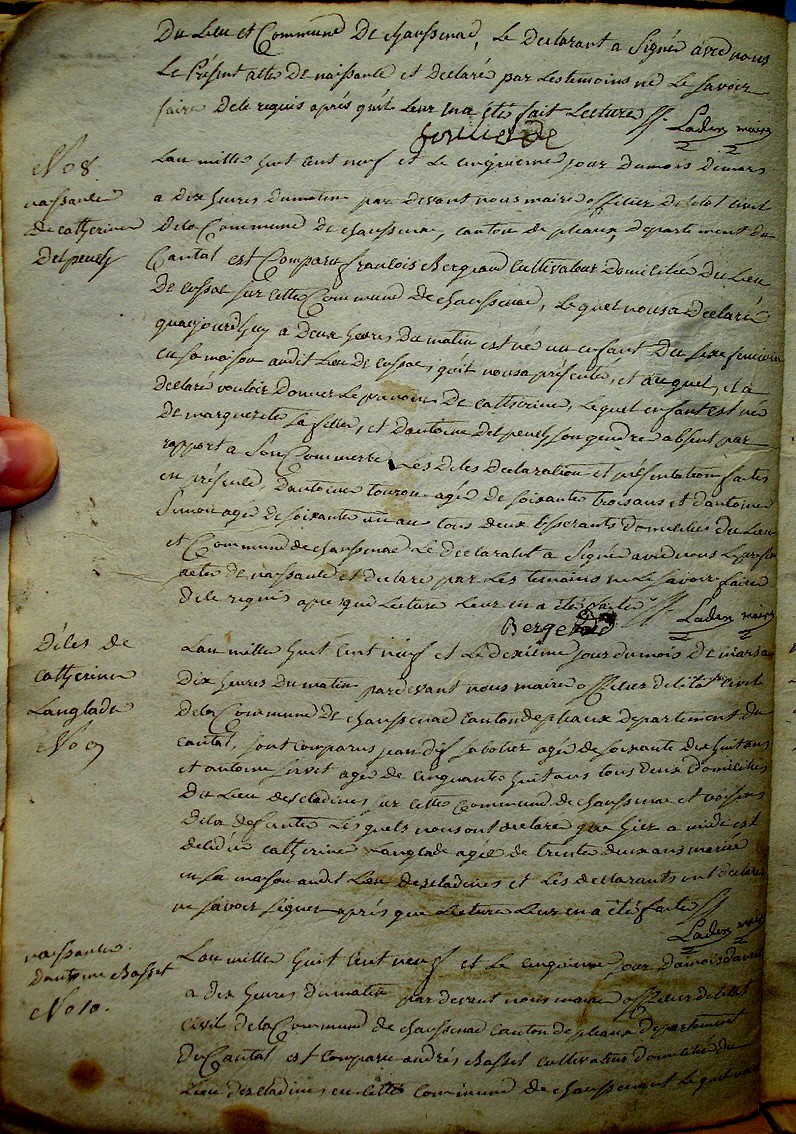 Du Lieu et Commune De chaussenac, Le Declarant a Signé avec nous
Le Présent acte De naissance et declaré par Les temoins ne Le Savoir
faire De le requis après qu'il Leur en a été fait Lecture
Laden maire
No 8.
naissance
de catherine
Delpeuch
Lan mille huit cent neuf et Le cinquieme jour Du mois De mars
a dix heures Du matin par Devant nous maire officier De l'etat civil
De la Commune De chaussenac, canton De pleaux, Departement Du
Cantal est Comparu francois Bergeaud Cultivateur Domicilié Du Lieu
De cossac sur cette Commune De chaussenac, Lequel nous a Declaré
quaujourdhuy a Deux heures Du matin est né un enfant Du sexe feminin
en sa maison audit Lieu De cossac, qu'il nous a présenté, et auquel, il a
Declaré vouloir Donner Le prenom De catherine, Lequel enfant est née
De marguerite sa fille, et Dantoine Delpeuch son gendre absent par
rapport a Son Commerce. Les Dites Declaration et présentation faites
en présence, Dantoine touron agé de soixante trois ans et Dantoine
Simon agé De soixante un an tous deux tisserants Domiciliés Du Lieu
et Commune de chaussenac Le declarant a Signé avec nous Le present
acte De naissance et declaré par Les temoins ne Le savoir faire
De le requis apres que Lecture Leur en a été faite
Bergeaud
Laden maire
Décès de
catherine
Langlade
No 9
Lan mille huit cent neuf et Le dexième jour du mois De mars a
Dix heures Du matin par devant nous maire officier De l'état civil
De la Commune De chaussenac canton de pleaux Departement Du
cantal, sont comparus jean agé de soixante dix huit ans
et antoine servet agé de cinquante huit ans tous deux Domiciliés
Du Lieu Descladines sur cette Commune De chaussenac et voisins
De la defunte Lesquels nous ont declaré que hier a midi est
décédée catherine Langlade agée De trente deux ans mariée
en sa maison audit Lieu Descladines et Les declarants ont declaré
ne savoir Signer après que Lecture Leur en a été faite
Laden maire
naissance
Dantoine Basset
No 10.
Lan mille huit cent neuf et Le cinquieme jour Du mois Davril
a dix heures Du matin par devant nous maire officier De l'etat
civil De la Commune De chaussenac canton De pleaux departement
Du Cantal est comparu andrés Basset cultivateur Domicilié Du
Lieu Descladines en cette commune De chaussenac Lequel nous